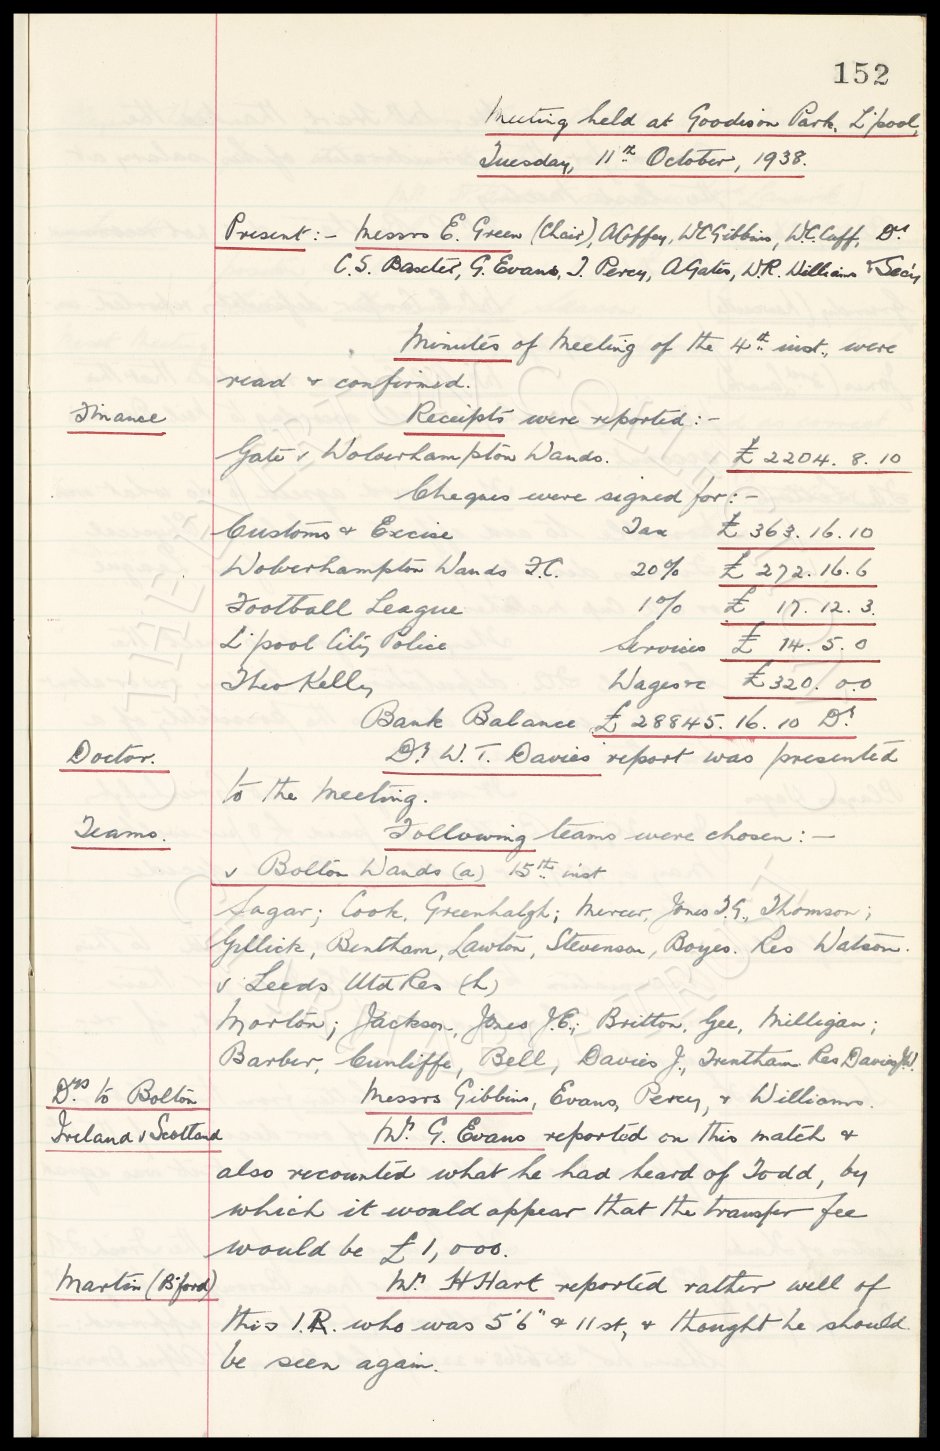 152
Meeting held at Goodison Park, L'pool,
Tuesday, 11th October, 1938.
Present:- Messrs E. Green (Chair), A Coffey, W C Gibbins, W.C. Cuff, Dr
C. S. Baxter, G. Evans, T. Percy, A Gates, W.R. Williams & Sec'y
Minutes of Meeting of the 4th inst., were
read & confirmed.
Finance
Receipts were reported:-
Gate v Wolverhampton Wands. £ 2204. 8. 10
Cheques were signed for:-
Customs & Excise Tax £ 363. 16. 10
Wolverhampton Wands F.C. 20% £ 272. 16. 6
Football League 1% £ 17. 12. 3.
L'pool City Police Services £ 14. 5. 0
Theo Kelly Wages &c £320. 0.0
Bank Balance £ 28845. 16. 10 Dr
Doctor.
Dr W. T. Davies' report was presented
to the meeting.
Teams.
Following teams were chosen:-
v Bolton Wands (a) 15th inst
Sagar; Cook, Greenhalgh; Mercer, Jones T.G., Thomson;
Gillick, Bentham, Lawton, Stevenson, Boyes. Res Watson.
v Leeds Utd Res (h)
Morton; Jackson, Jones J.E.; Britton, Gee, Milligan;
Barber, Cunliffe, Bell, Davies J., Trentham Res Davies J.W.
Drs to Bolton
Messrs Gibbins, Evans, Percy, & Williams.
Ireland v Scotland
Mr. G. Evans reported on this match &
also recounted what he had heard of Todd, by
which it would appear that the transfer fee
would be £1,000.
Martin (B'ford)
Mr. H Hart reported rather well of
this I.R. who was 5'6" & 11 st, & thought he should
be seen again.